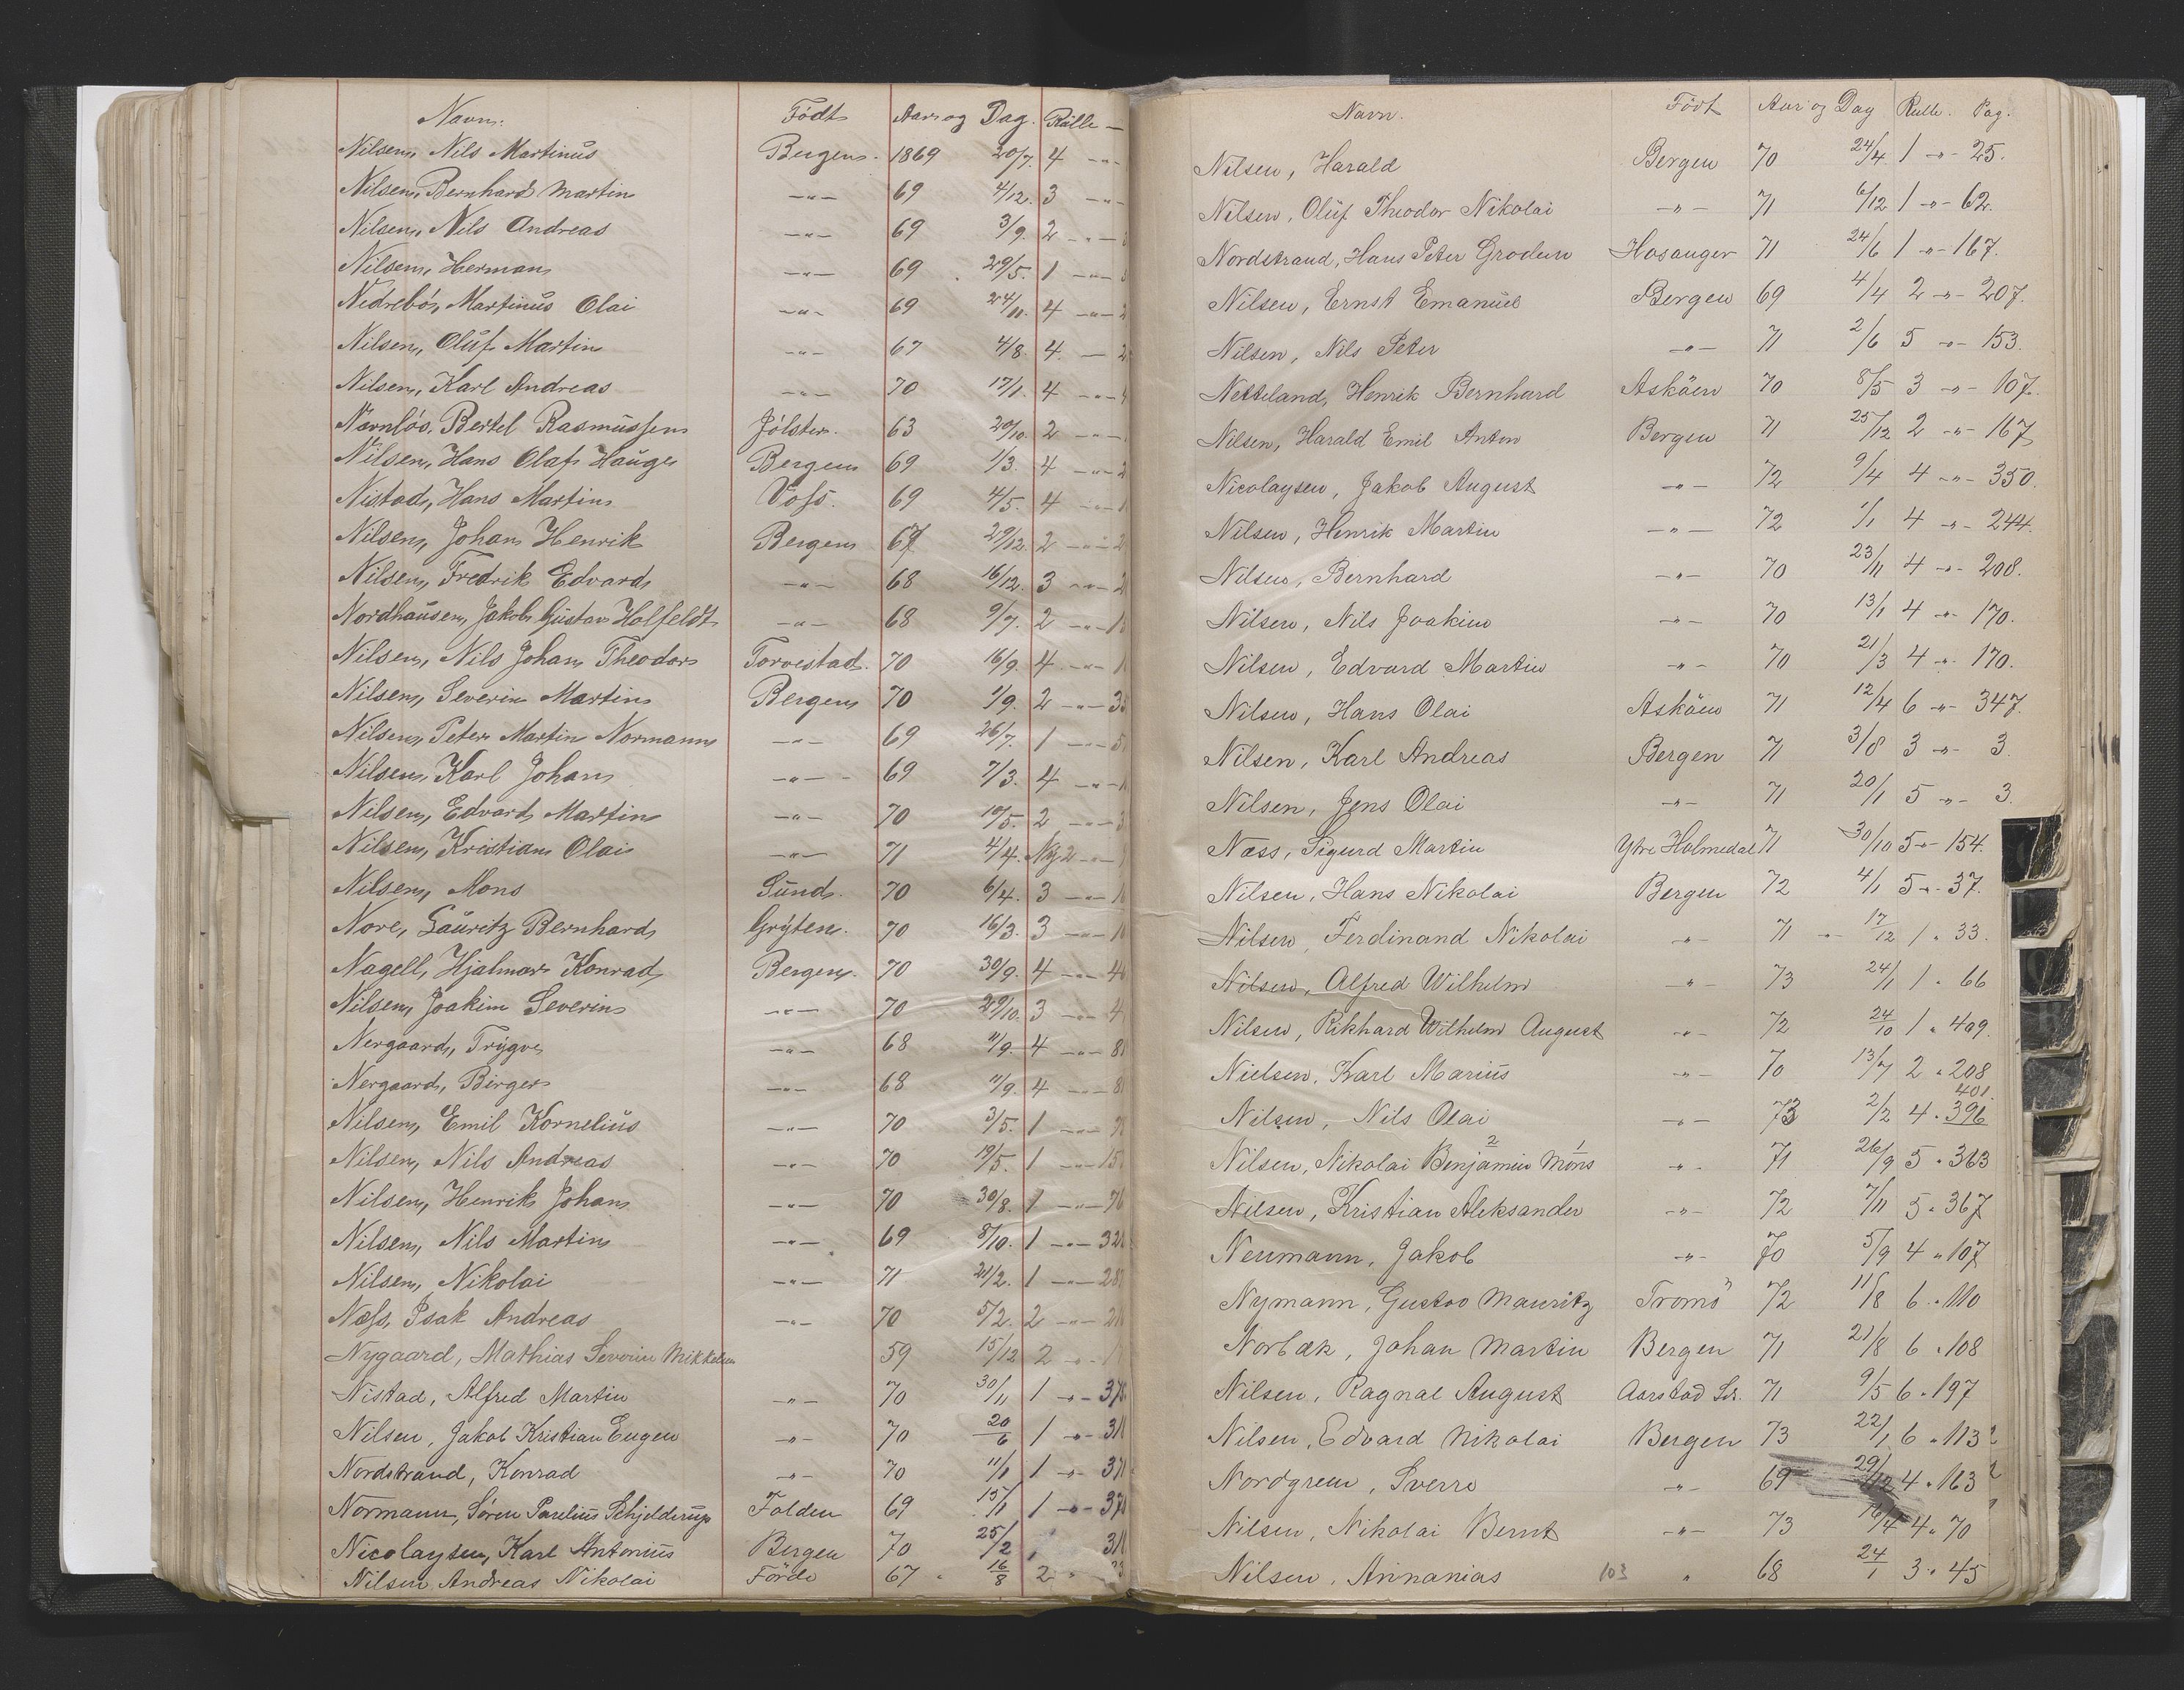 Navn. Födt Aar og Dag. Rulle —
Nilsen, Nils Martinus Bergen. 1869 20/7. 4 -"-
Nilsen, Bernhard Martin -"- 69 4/12. 3 -"-
Nilsen, Nils Andreas -"- 69 3/9. 2 -"-
Nilsen, Herman -"- 69 29/5. 1 -"-
Nedrebö, Martinus Olai -"- 69 24/11. 4 -"-
Nilsen, Oluf Martin -"- 67 4/8. 4 —
Nilsen, Karl Andreas -"- 70 17/1. 4 -"-
Navnlös, Bertel Rasmussen Jölster. 63 20/10. 2 -"-
Nilsen, Hans Olaf Hauge Bergen 69 1/3. 4 -"-
Nistad, Hans Martin Voss. 69 4/5. 4 -"-
Nilsen, Johan Henrik Bergen 67 29/12. 2 -"-
Nilsen, Fredrik Edvard -"- 68 16/12. 3 -"-
Nordhausen, Jakob Gustav Holfeldt -"- 68 9/7. 2 -"-
Nilsen, Nils Johan Theodor Torvestad. 70 16/9. 4 -"-
Nilsen, Severin Martin Bergen 70 1/9. 2 -"-
Nilsen, Peter Martin Normann -"- 69 26/7. 1 -"-
Nilsen, Karl Johan -"- 69 7/3. 4 -"-
Nilsen, Edvard Martin -"- 70 10/5. 2 -"-
Nilsen, Kristian Olai -"- 71 4/4. Ny 2 -"-
Nilsen, Mons Sund. 70 6/4. 3 -"-
Nore, Lauritz Bernhard Gryten. 70 16/3. 3 -"-
Nagell, Hjalmar Konrad Bergen. 70 30/9. 4 -"-
Nilsen, Joakim Severin -"- 70 29/10. 3 -"-
Nergaard, Trygve -"- 68 11/9. 4 -"-
Nergaard, Birger -"- 68 11/9. 4 -"-
Nilsen, Emil Kornelius -"- 70 3/5. 1 -"-
Nilsen, Nils Andreas -"- 70 19/5. 1 -"-
Nilsen, Henrik Johan -"- 70 30/8. 1 -"-
Nilsen, Nils Martin -"- 69 8/10. 1 -"-
Nilsen, Nikolai -"- 71 21/2. 1 -"-
Næss, Isak Andreas -"- 70 5/2. 2 -"-
Nygaard, Mathias Severin Mikkelsen 59 15/12 2 -"-
Nistad, Alfred Martin -"- 70 30/11 1 -"-
Nilsen, Jakob Kristian Eugen -"- 70 20/6 1 -"-
Nordstrand, Konrad -"- 70 11/1 1 -"-
Normann, Sören Parelius Schjelderup Folden 69 15/11 1 -"-
Nicolaysen, Karl Antonius Bergen 70 25/2
Nilsen Andreas Nikolai Förde 67 16/8 2 "
Navn. Födt Aar og Dag Rulle. Pag.
Nilsen, Harald Bergen 70 24/4 1 -"- 25.
Nilsen, Oluf Theodor Nikolai -"- 71 6/12 1 -"- 62.
Nordstrand, Hans Peter Grodem Hosanger 71 24/6 1 -"- 167.
Nilsen, Ernst Emanuel Bergen 69 4/4 2 -"- 207.
Nilsen, Nils Peter -"- 71 2/6 5 -"- 153.
Netteland, Henrik Bernhard Asköen 70 8/5 3 -"- 107.
Nilsen, Harald Emil Anton Bergen 71 25/12 2 -"- 167
Nicolaysen, Jakob August -"- 72 9/4 4 -"- 350.
Nilsen, Henrik Martin -"- 72 1/1 4 -"- 244.
Nilsen, Bernhard -"- 70 23/11 4 -"- 208.
Nilsen, Nils Joakim -"- 70 13/1 4 -"- 170.
Nilsen, Edvard Martin -"- 70 21/3 4 -"- 170.
Nilsen, Hans Olai Asköen 71 12/4 6 -"- 347.
Nilsen, Karl Andreas Bergen 71 3/8 3 -"- 3.
Nilsen, Jens Olai -"- 71 20/1 5 -"- 3.
Næss, Sigurd Martin Ytre Holmedal 71 30/10 5 -"- 154.
Nilsen, Hans Nikolai Bergen 72 4/1 5 -"- 37.
Nilsen, Ferdinand Nikolai -"- 71 17/12 1 " 33.
Nilsen, Alfred Wilhelm -"- 73 24/1 1 " 66
Nilsen, Rikhard Wilhelm August -"- 72 24/10 1 " 409.
Nielsen, Karl Marius -"- 70 13/7 2 " 208
401.
Nilsen, Nils Olai -"- 73 2/2 4 " 396
Nilsen, Nikolai Benjamin Mons -"- 71 26/9 5 " 363
Nilsen, Kristian Aleksander -"- 72 7/11 5 " 367
Neumann, Jakob -"- 70 5/9 4 " 107
Nymann, Gustav Mauritz Tromö 72 11/8 6 " 110
Norbæk, Johan Martin Bergen 71 21/8 6 " 108
Nilsen, Ragnal August Aarstad Sdr. 71 9/5 6 " 197
Nilsen, Edvard Nikolai Bergen 73 22/1 6 " 113
Nordgren, Sverre -"- 69 29/12 4 " 163
Nilsen, Nikolai Bernt -"- 73 4 " 70
Nilsen, Annanias 103 " 68 24/1 3 " 45